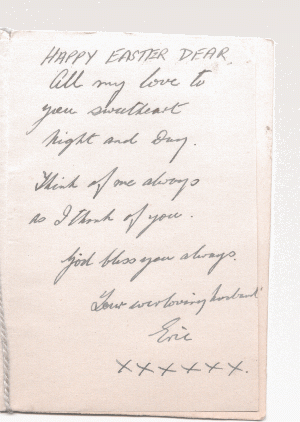 HAPPY EASTER DEAR.
All my love to
you sweetheart
Night and Day.
Think of me always
as I think of you.
God bless you always.
Your everloving husband
Eric
xxxxxx.